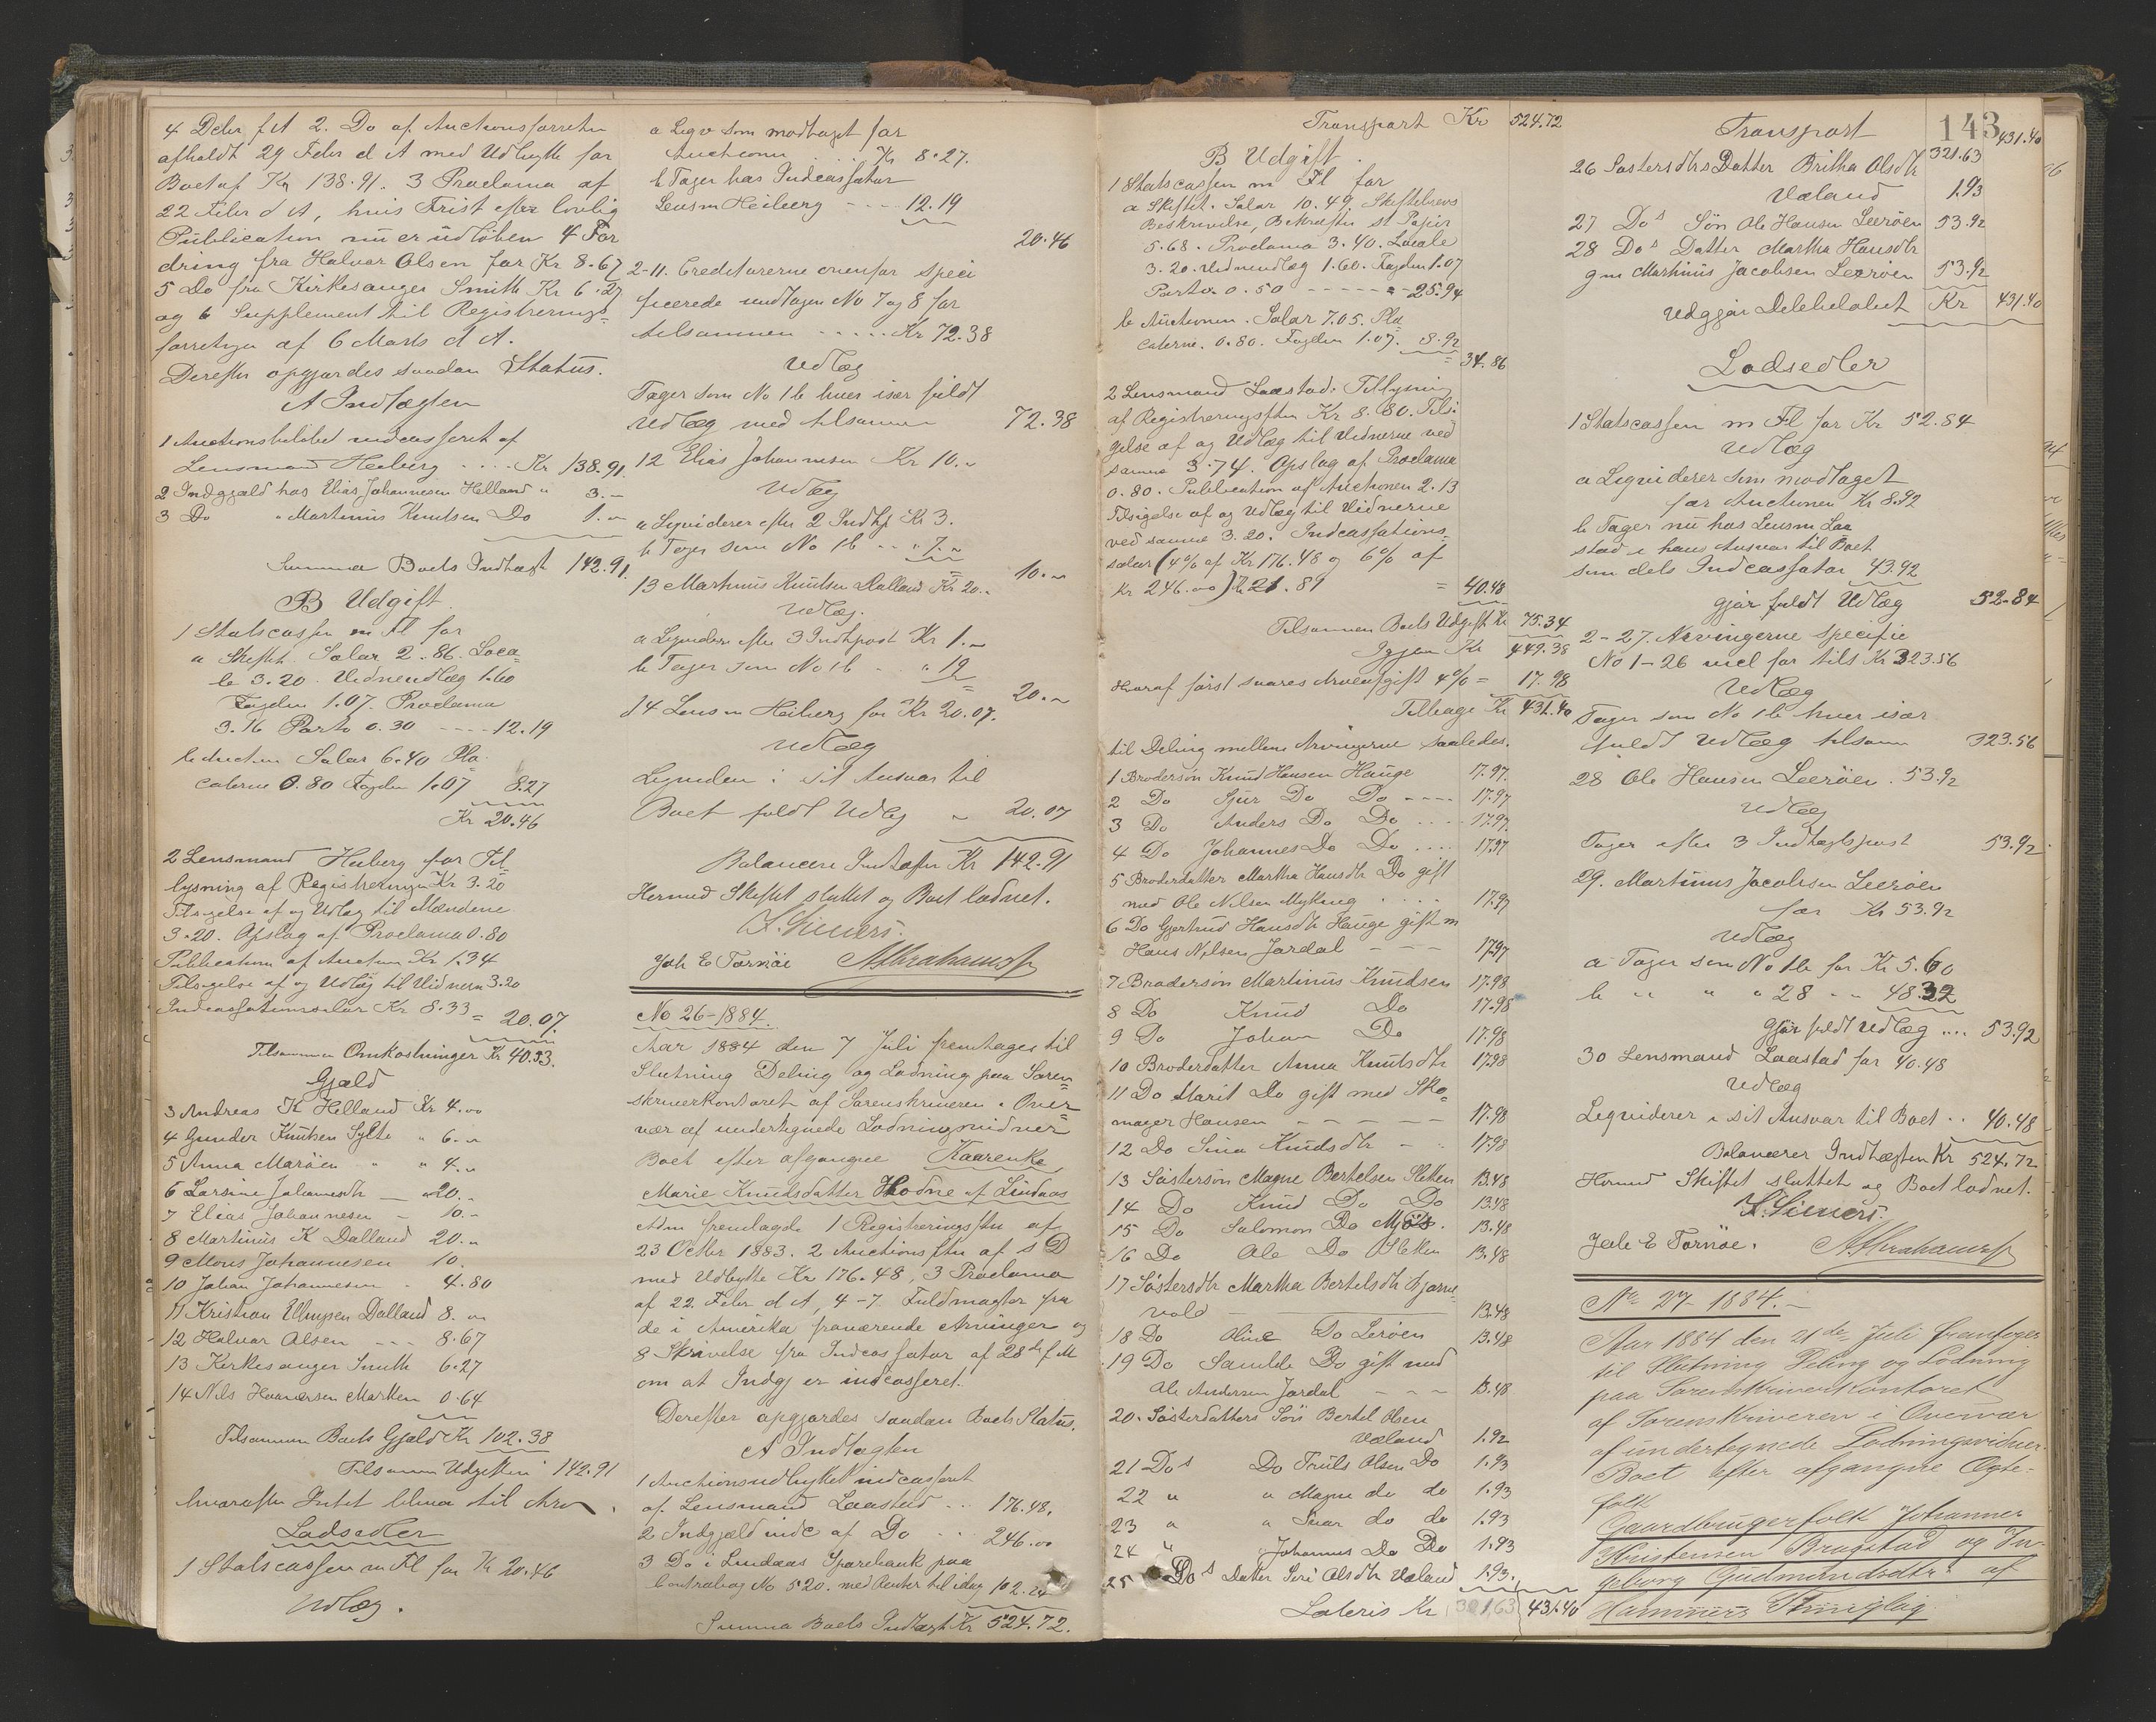 4 Debr f A 2. Do af Auctionsforretn
afholdt 29 Febr d A med Udbytte for
Boet af Kr 138.91. 3 Proclama af
22 Febr d A, hvis Frist efter lovlig
Publication nu er udløben 4 For
dring fra Halvor Olsen for Kr 8.67
5 Do fra Kirkesanger Smith Kr 6.27
og 6 Supplement til Registrerings-
forretngen af 6 Marts d A.
Derefter opgjordes saadan Status.
A Indtægten
1 Auctionsbeløbet indcasseret af
Lensmand Heiberg .... Kr 138.91.
2 Indgjæld hos Elias Johannesen Helland " 3.-
3 Do " Martinus Knutsen Do 1.-
Summa Boets Indtægt 142.91.
B Udgift
1 Statscassen m Fl for
a Skiftet. Salar 2.86. Loca-
le 3.20. Vidneudlæg 1.60
Fogden 1.07. Proclama
3.16 Porto 0.30 ---- 12.19
b Auction Salar 6.40 Pla
caterne 0.80 Fogden 1.07 8.27
Kr 20.46
2 Lensmand Heiberg for Til-
lysning af Registreringen Kr 3.20
Tilsigelse af og Udlæg til Mændene
3.20. Opslag af Proclama 0.80
Publication af Auction Kr 1.34
Tilsigelse af og Udlæg til Vidnerne 3.20
Indcassationssalær Kr 8.33 = 20.07.
Tilsammen Omkostninger Kr 40.53.
Gjæld
3 Andreas K Helland Kr 4.00
4 Gunder Knutsen Sylte " 6.-
5 Anna Marøen " " 4.-
6 Larsine Johannesdtr — 20.-
7 Elias Johannesen — 10.-
8 Martinus K Dalland 20.-
9 Mons Johannesen 10.
10 Johan Johannesen 4.80
11 Kristian Dalland 8.00
12 Halvor Olsen --- 8.67
13 Kirkesanger Smith 6.27
14 Nils Marken 0.64
Tilsammen Boets Gjæld Kr 102.38
Tilsammen Udgiften 142.91
hvorefter Intet bliver til Arv.
Lodsedler
1 Statscassen m Fl for Kr 20.46
Udlæg.
a Liqv som modtaget for
Auctionen ... Kr 8.27.
b Tager hos Indcassator
Lensm Heiberg ---- 12.19
20.46
2-11. Creditorerne ovenfor speci
ficerede undtagen No 7 og 8 for
tilsammen ..... Kr 72.38
Udlæg
Tager som No 1b hver især fuldt
Udlæg med tilsammen 72.38
12 Elias Johannesen Kr 10.-
Udlæg
a Liqviderer efter 2 Indtp Kr 3.
b Tager som No 1b .. " 7.-
10.-
13 Martinus Knutsen Dalland Kr 20.-
Udlæg.
a Liqviderer efter 3 Indtpost Kr 1.-
b Tager som No 1b .. " 19
20.-
14 Lensm Heiberg for Kr 20.07.
Udlæg
Liqviderer i sit Ansvar til
Boet fuldt Udlæg " 20.07
Balancerer Indtægten Kr 142.91
Hermed Skiftet sluttet og Boet lodnet.
S. Sievers.
Joh E Tornöe A Abrahamsen
No 26-1884.
Aar 1884 den 7 Juli fremtages til
Slutning Deling og Lodning paa Soren-
skriverkontoret af Sorenskriveren i Over-
vær af undertegnede Lodningsvidner
Boet efter afgangne Kaarenke
Marie Knutsdatter Hodne af Lindaas
Adm fremlagde 1 Registreringsftn af
23 Octbr 1883. 2 Auctionsftn af s D
med Udbytte Kr 176.48, 3 Proclama
af 22 Febr d A, 4-7 Fuldmagter fra
de i Amerika fraværende Arvinger og
8 Skrivelse fra Indcassator af 28de f M
om at Indgj er indcasseret.
Derefter opgjordes saadan Boets Status.
A Indtægten
1 Auctionsudbyttet indcasseret
af Lensmand Laastad ... 176.48.
2 Indgjæld indc af Do ... 246.00
3 Do i Lindaas Sparebank paa
Contrabog No 520. med Renter til idag 102.24
Summa Boets Indtægt Kr 524.72.
Transport Kr 524.72
B Udgift.
1 Statscassen m Fl for
a Skiftet. Salar 10.49. Skiftebrevs
Beskrivelse, Bekræftn st Papir
5.68. Proclama 3.40. Locale
3.20. Vidneudlæg 1.60. Fogden 1.07
Porto 0.50 ----- 25.94
b Auctionen. Salar 7.05. Pla
caterne. 0.80. Fogden 1.07. 8.92
= 34.86
2 Lensmand Laastad. Tillysning
af Registreringsftn Kr 8.80. Tilsi-
gelse af og Udlæg til Vidnerne ved
samme 3.74. Opslag af Proclama
0.80. Publication af Auctionen 2.13
Tilsigelse af og Udlæg til Vidnerne
ved samme 3.20. Indcassations-
salar (4% af Kr 176.48 og 6% af
Kr 246.00) Kr 21.81 = 40.48
Tilsammen Boets Udgift Kr 75.34
Igjen Kr 449.38
Hvoraf først svares Arveafgift 4% = 17.98
Tilbage Kr 431.40
til Deling mellem Arvingerne saaledes.
1 Brodersøn Knud Hansen Hauge 17.97.
2 Do Sjur Do Do ---- 17.97
3 Do Anders Do Do .... 17.97.
4 Do Johannes Do Do .... 17.97
5 Broderdatter Martha Hansdtr Do gift
med Ole Nilsen Myking .... 17.97
6 Do Gjertrud Hansdtr Hauge gift m
Hans Nilsen Jordal --- 17.97
7 Brodersøn Martinus Knudsen 17.98
8 Do Knud Do 17.98
9 Do Johan Do 17.98
10 Broderdatter Anna Knutsdtr 17.98
11 Do Marit Do gift med Sko-
mager Hansen ----- 17.98
12 Do Sina Knudsdtr - . 17.98
13 Søstersøn Magne Bertelsen Sletten 13.48
14 Do Knud Do Do 13.48
15 Do Salomon Do Mjøs. 13.48
16 Do Ole Do Sletten 13.48
17 Søstersdtr Martha Bertelsdtr Bjørne-
vold — 13.48
18 Do Oline Do Lerøen 13.48
19 Do Do gift med
Ole Andersen Jordal --- 13.48
20. Søsterdatters Søn Bertel Olsen
Væland 1.92
21 Dos Do Truls Olsen Do 1.93
22 " " Magne do do 1.93
23 " " Ivar do do 1.93
24 " " Johannes Do Do 1.93
25 Dos Datter Siri Olsdtr Væland 1.93.
Lateris Kr 321.63 431.40
143
Transport 431.40
321.63
26 Søstersdtrs Datter Britha Olsdtr
Væland 1.93
27 Dos Søn Ole Hansen Leerøen 53.92
28 Dos Datter Martha Hansdtr
gm Martinus Jacobsen Leerøen 53.92
Udgjør Delebeløbet Kr 431.40
Lodsedler
1 Statscassen m Fl for Kr 52.84
Udlæg
a Liqviderer som modtaget
for Auctionen Kr 8.92
b Tager nu hos Lensm Laa
stad i hans Ansvar til Boet
som dets Indcassator 43.92
gjør fuldt Udlæg 52.84
2-27. Arvingerne specific
No 1-26 incl for tils Kr 323.56
Udlæg
Tager som No 1b hver især
fuldt Udlæg tilsam 323.56
28 Ole Hansen Leerøen. 53.92
Udlæg
Tager efter 3 Indtægtspost 53.92
29. Martinus Jacobsen Leerøen
for Kr 53.92
Udlæg
a Tager som No 1b for Kr 5.60
b " " " 28 " " 48.32
Gjør fuldt Udlæg .... 53.92
30 Lensmand Laastad for 40.48
Udlæg
Liqviderer i sit Ansvar til Boet .. 40.48
Balancerer Indtægten Kr 524.72
Hermed Skiftet sluttet og Boet lodnet.
S. Sievers.
Joh E Tornöe. A Abrahamsen
No 27-1884.
Aar 1884 den 21de Juli fremtoges
til Slutning Deling og Lodning
paa Sorenskriverkontoret
af Sorenskriveren i Overvær
af undertegnede Lodningsvidner
Boet efter afgangne Ægte-
folk
Gaardbrugerfolk Johannes
Kristensen Bragstad og In-
geborg Gudmundsdtr af
Hammers Thinglag